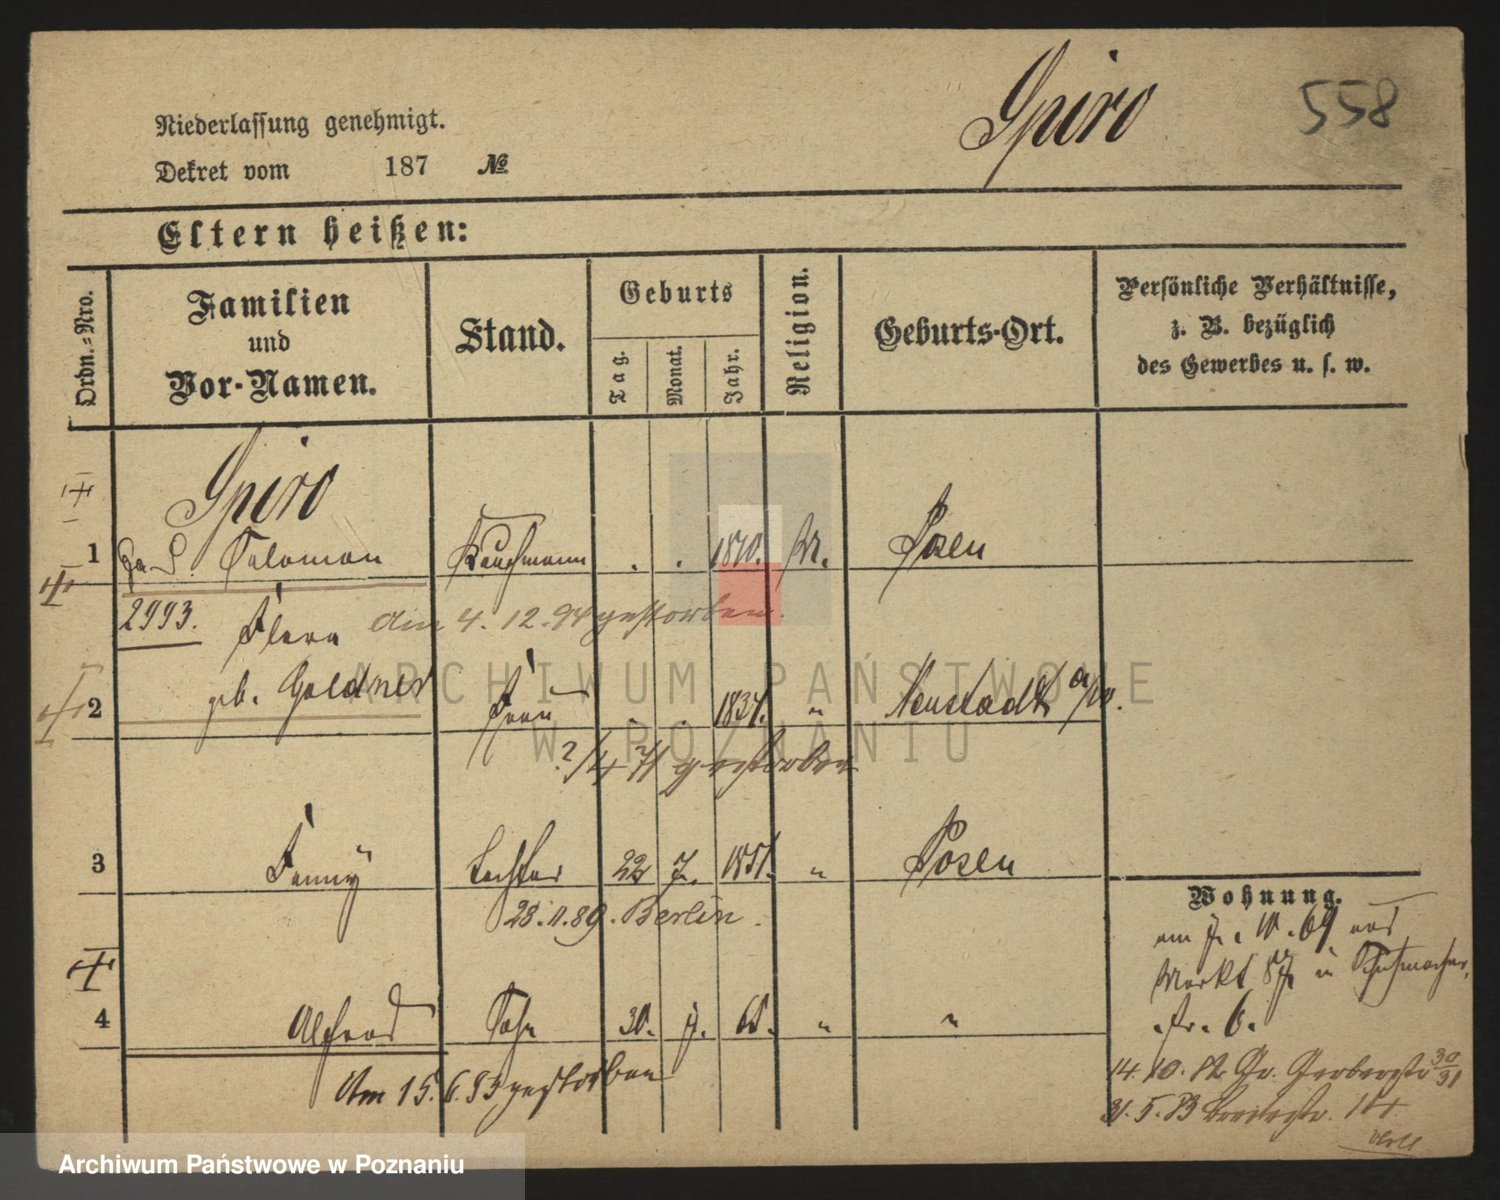 Spiro
558
Niederlassung genehmigt.
Dekret vom 187 №
Eltern heißen:
Ordn.-Nro.
Familien
und
Vor-Namen.
Stand.
Geburts
Tag.
Monat.
Jahr.
Religion.
Geburts-Ort.
Persönliche Verhältnisse,
z. B. bezüglich
des Gewerbes u. s. w.
Spiro
1 Salomon Kaufmann . . Posen
2993. Flora am 4. 12. 94 gestorben.
2 geb. Goldner Frau . . 1837. " Neustadt a/W.
gestorben
3 Fanny Tochter 22 7. " Posen
28.11.89. Berlin.
4 Alfred Sohn 30. " "
Am 15. 6. 83 gestorben
Wohnung.
Markt 87 in Schuhmacher
str. 6.
14. 10. Gr. Gerberstr 30/31
31. 5. 83 Breitestr.
ARCHIWUM PAŃSTWOWE
W POZNANIU
Archiwum Państwowe w Poznaniu